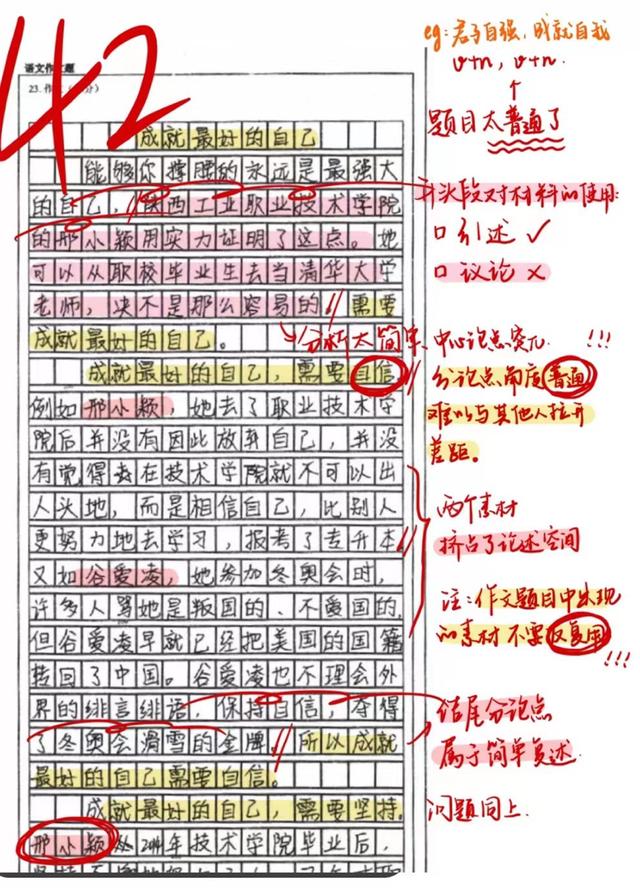 42
语文作文题
23. 作
成就最好的自己
能够你撑腰的永远是最强大
的自己,陕西工业职业技术学院
的邢小颖用实力证明了这点。她
可以从职校毕业生去当清华大学
老师,决不是那么容易的,需要
成就最好的自己。
成就最好的自己,需要自信
例如邢小颖,她去了职业技术学
院后并没有因此放弃自己,并没
有觉得去在技术学院就不可以出
人头地,而是相信自己,比别人
更努力地去学习,报考了专升本
又如谷爱凌,她参加冬奥会时,
许多人骂她是叛国的、不爱国的。
但谷爱凌早就已经把美国的国籍
转回了中国。谷爱凌也不理会外
界的绯言绯语,保持自信,夺得
了冬奥会滑雪的金牌。所以成就
最好的自己需要自信。
成就最好的自己,需要坚持。
邢小颖从 年技术学院毕业后,
eg:君子自强,成就自我
v+n, v+n.
题目太普通了
开头段对材料的使用:
口引述 ✓
口议论 ×
分析太简单、中心论点突兀 !!!
分论点角度普通
难以与其他人拉开
差距。
两个素材
挤占了论述空间
注:作文题目中出现
的素材不要反复用
!!!
结尾分论点
属于简单复述.
问题同上.